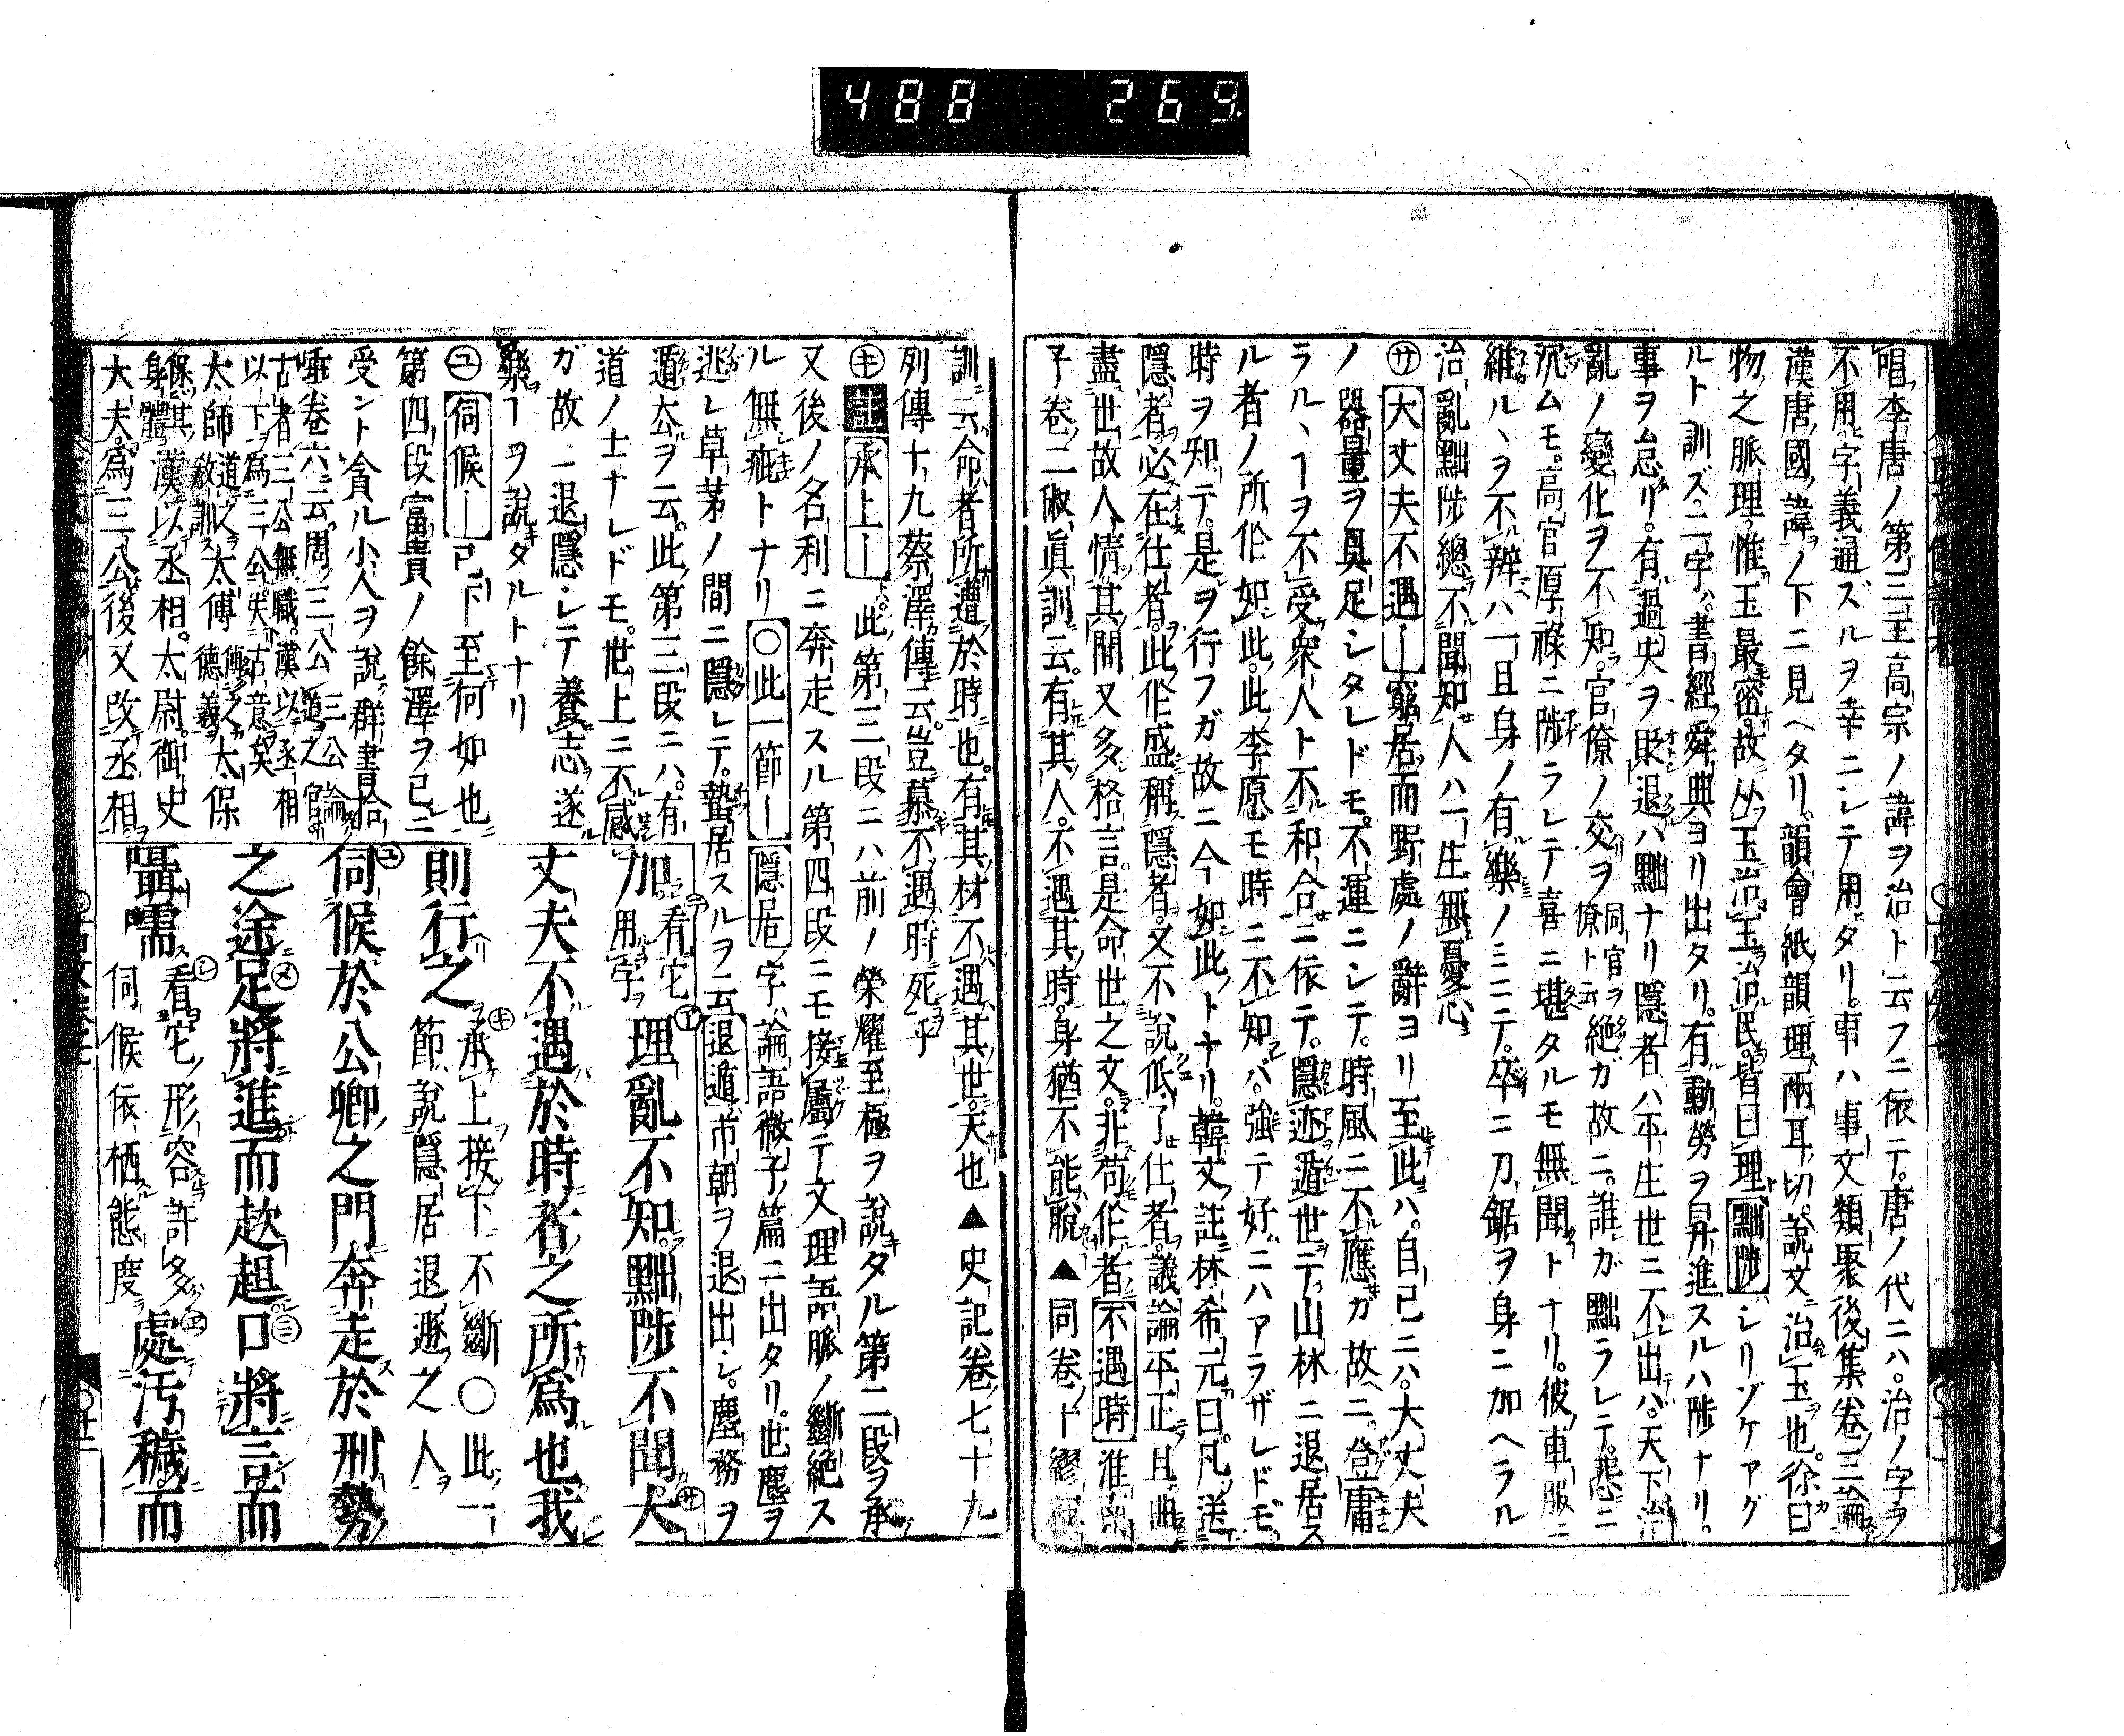 488 269
唱李唐ノ第三主高宗ノ諱ヲ治ト云フニ依テ唐ノ代ニハ治ノ字ヲ
不用字義通ズルヲ幸ニシテ用タリ事ハ事文類聚後集卷三論
漢唐國諱ノ下ニ見ヘタリ韻會紙韻理兩耳切說文治玉也徐曰
物之脈理惟玉最密故从玉治玉治民皆曰理黜陟シリゾケアグ
ルト訓ズ二字ハ書經舜典ヨリ出タリ有動勞ヲ昇進スルハ陟ナリ
事ヲ怠リ有過失ヲ貶退ハ黜ナリ隱者ハ平生世ニ不出ハ天下治
亂ノ變化ヲ不知官僚ノ交ヲ同官ヲ僚ト云絶ガ故ニ誰カ黜ラレテ悲ニ
沉ムモ高官厚祿ニ陟ラレテ喜ニ堪タルモ無聞トナリ彼車服ニ
維ルヽヲ不辨ハ一旦身ノ有樂ノミニテ卒ニ刀鋸ヲ身ニ加ヘラル
治亂黜陟總不聞知人ハ一生無憂心
㋚大丈夫不遇―窮居而野處ノ辭ヨリ至此ハ自己ニハ大丈夫
ノ器量ヲ具足シタレドモ不運ニシテ時風ニ不應ガ故ニ登庸
ラルヽヿヲ不受衆人ト不和合ニ依テ隱迹遁世シテ山林ニ退居ス
ル者ノ所作如此此李愿モ時ニ不知バ強テ好ニハアラザレドモ
時ヲ知テ是ヲ行フガ故ニ今如此トナリ韓文註林希元曰凡送
隱者必在仕者此作盛稱隱者又不說低了仕者議論平正且曲
盡世故人情其間又多格言是命世之文非苟作者不遇時淮南
子卷二俶眞訓云有其人不遇其時身猶不能脫▲同卷十繆稱
訓云命者所遭於時也有其材不遇其世天也▲史記卷七十九
列傳十九蔡澤傳云豈慕不遇時死乎
㋖註承上―此第三段ニハ前ノ榮耀至極ヲ說タル第二段ヲ承
又後ノ名利ニ奔走スル第四段ニモ接屬テ文理語脈ノ斷絶ス
ル無疵トナリ○此一節―隱居字論語微子篇ニ出タリ世塵ヲ
逃レ草茅ノ間ニ隱レテ蟄居スルヲ云退遁市朝ヲ退出シ塵務ヲ
遁厺ヲ云此第三段ニハ有
道ノ士ナレドモ世上ニ不感
ガ故ニ退隱シテ養志遂
樂ヿヲ說タルトナリ
㋴伺候―已下至何如也
第四段富貴ノ餘澤ヲ已ニ
受ント貪ル小人ヲ說群書拾
唾卷六云周三公三公論道之官
古者三公無職漢以丞相
以下爲三公失古意矣
太師道之敎訓太傅傅之德義太保
保其身體漢以丞相太尉御史
大夫爲三公後又改丞相
加看它用字理亂不知黜陟不聞大
丈夫不遇於時者之所爲也我
則行之承上接下不斷○此一節說隱居退遯之人
伺候於公卿之門奔走於刑勢
之途足將進而趑趄口將言而
囁嚅看它形容許多伺候依栖態度處汚穢而